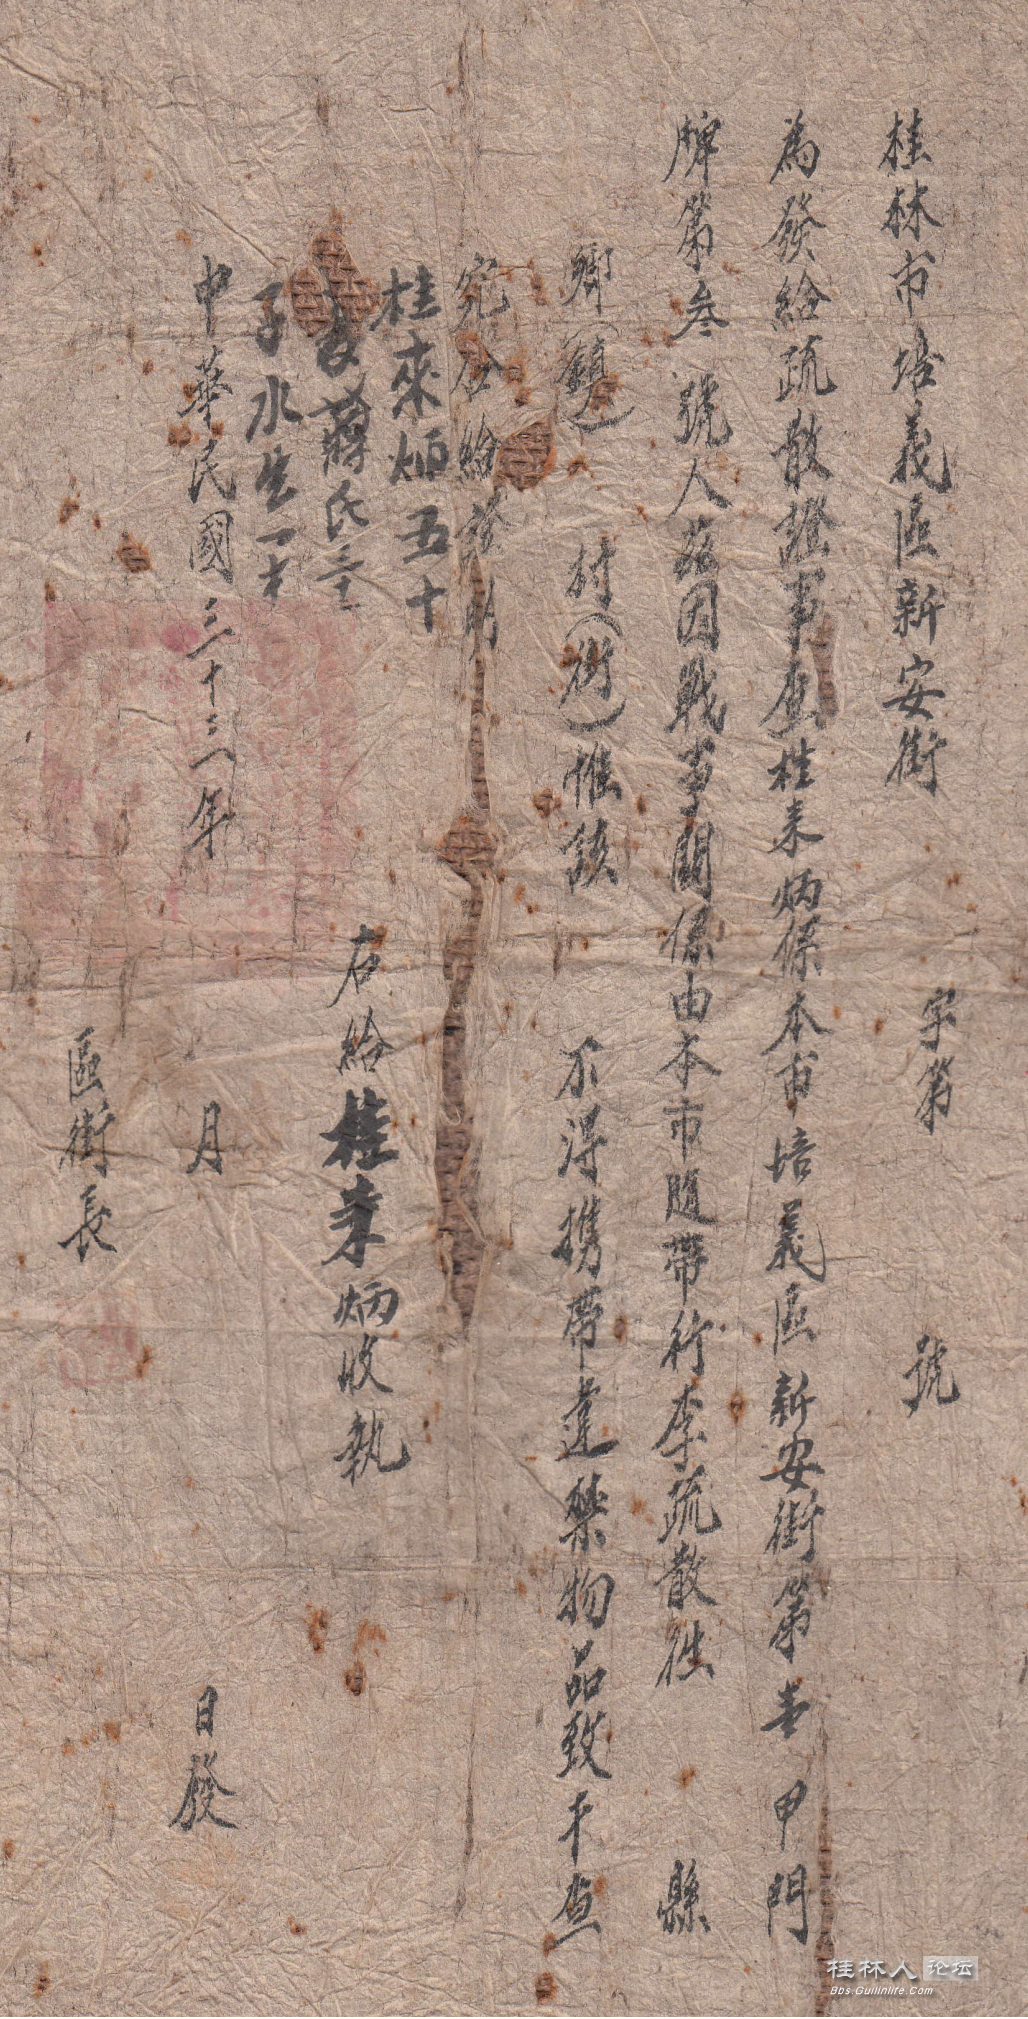 桂林市培義區新安街 字第 號
為發給疏散證事茲桂来炳係本市培義區新安街第壹甲門
牌第叁號人茲因戰事關係由本市隨帶行李疏散徃 縣
鄉（鎮） 村（街）惟該 不得携帶違禁物品致干查
究合給證明
桂來炳五十
妻蔣氏三
子水生一才
右給桂来炳收執
中華民國三十三年 月 日發
區街長
桂林人论坛
Bbs.Guilinlife.Com